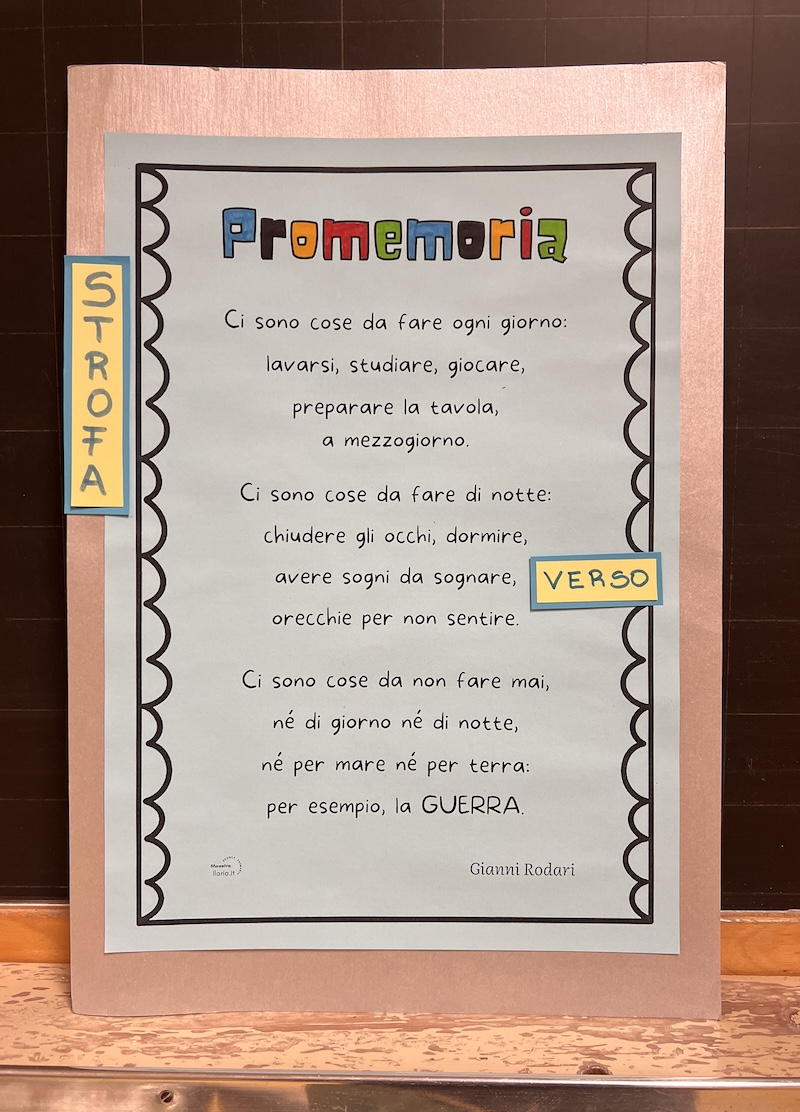 Promemoria
Ci sono cose da fare ogni giorno:
lavarsi, studiare, giocare,
preparare la tavola,
a mezzogiorno.
STROFA
Ci sono cose da fare di notte:
chiudere gli occhi, dormire,
avere sogni da sognare,
VERSO
orecchie per non sentire.
Ci sono cose da non fare mai,
né di giorno né di notte,
né per mare né per terra:
per esempio, la GUERRA.
Maestra
Ilaria.it
Gianni Rodari